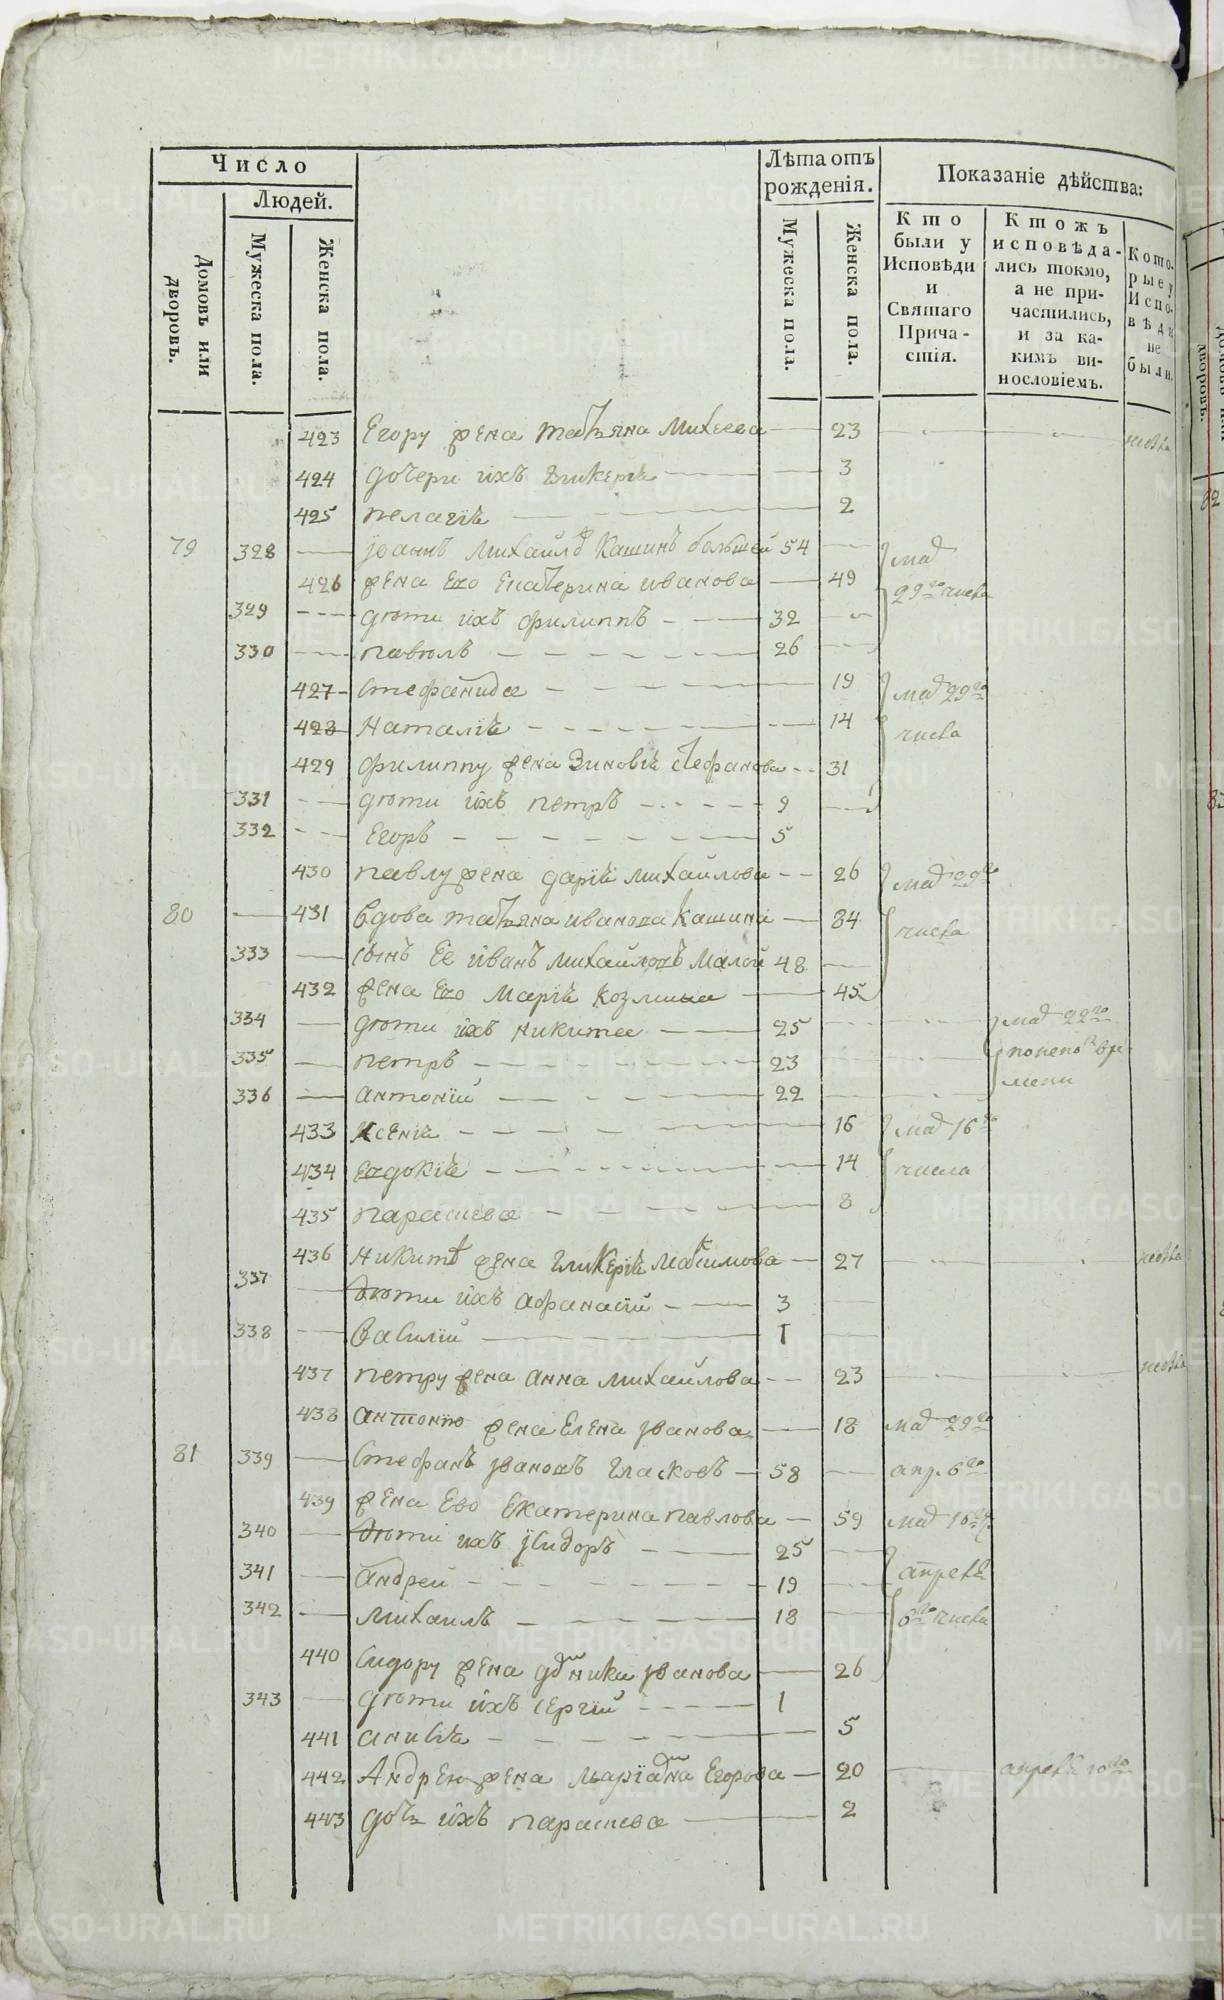 Число
Людей.
Домовъ или дворовъ.
Мужеска пола.
Женска пола.
Лѣта отъ рожденія.
Мужеска пола.
Женска пола.
Показаніе дѣйства:
Кто были у Исповѣди и Святаго Причастія.
Ктожъ исповѣдались токмо, а не причастились, и за какимъ винословіемъ.
Которые у Исповѣди не были.
423 Егору жена Татьяна Михеева 23
424 дочери ихъ Гликерія 3
425 пелагія 2
79 328 Іоаннъ Михайловъ Кашинъ большей 54 маія
426 жена Ево Екатерина иванова 49 29го числа
329 дѣти ихъ филиппъ 32
330 павелъ 26
427 стефанида 19 маія 29го
428 Наталія 14 числа
429 филиппу жена Зиновія стефанова 31
331 дѣти ихъ петръ 9
332 Егоръ 5
430 павлу жена дарія михайлова 26 маія 29го
80 431 вдова татьяна иванова Кашина 84 числа
333 сынъ Ее иванъ михайловъ малой 48
432 жена Ево марія козмина 45
334 дѣти ихъ никита 25 маія 22го
335 петръ 23
336 антоній 22
433 Ксенія 16 маія 16го
434 Евдокія 14 числа
435 параскева 8
436 никитѣ жена гликерія максимова 27
337 дѣти ихъ афанасій 3
338 василій 1
437 петру жена анна михайлова 23
438 антонію жена Елена іванова 18 маія 29го
81 339 Стефанъ івановъ Гласковъ 58 апр. 6го
439 жена Ево Екатерина павлова 59 маія 16го
340 дѣти ихъ Ісидоръ 25
341 андрей 19 апреля
342 михаилъ 18 6го числа
440 Сидору жена домника іванова 26
343 дѣти ихъ сергій 1
441 анисія 5
442 Андрею жена маріамна Егорова 20 апреля 10го
443 дочь ихъ параскева 2
METRIKI.GASO-URAL.RU